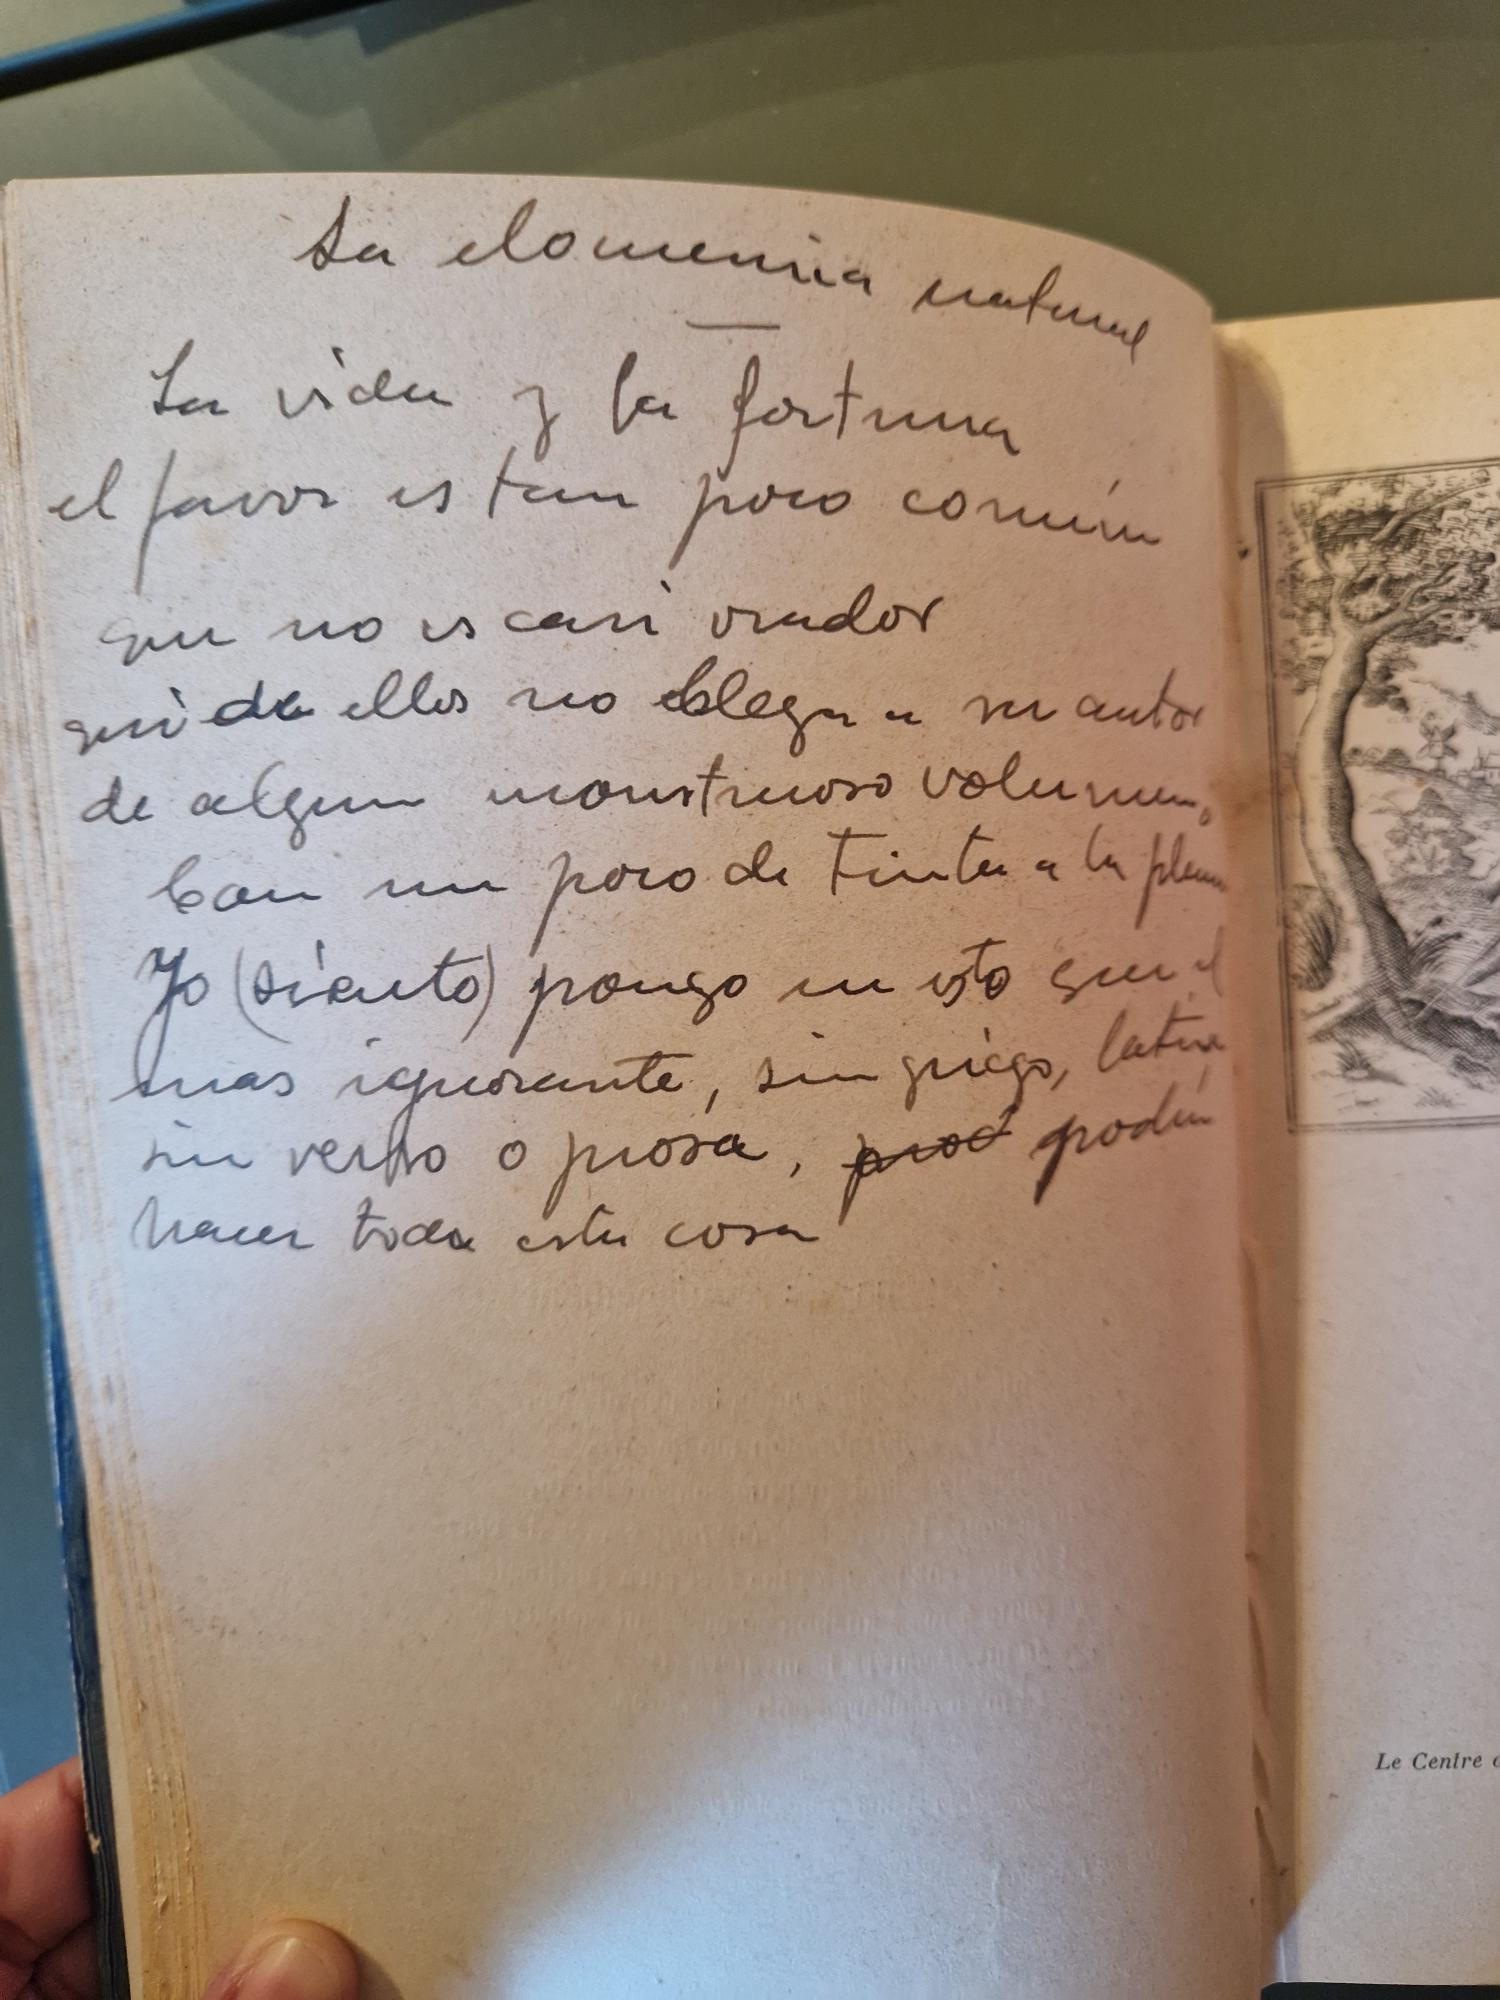 La elocuencia natural
La vida y la fortuna
el favor es tan poco común
que no es casi orador
qui de ellos no llega a su autor
de algun monstruoso volumen,
Con un poco de tinta a la pluma
Yo (siento) pongo en esto que el
mas ignorante, sin griego, latin,
sin verso o prosa, prod podrín
hacer toda esta cosa
Le Centre